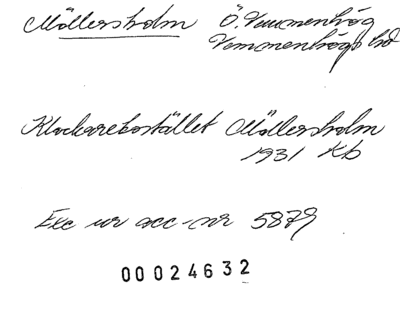 Möllersholm Ö. Vemmenhög
Vemmenhögs hd
Klockarebostället Möllersholm
1931 Kb
Exc ur acc-nr 5879
00024632